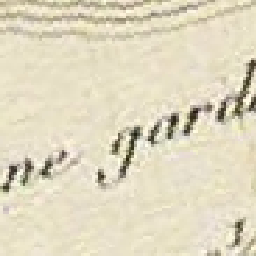 ne gard